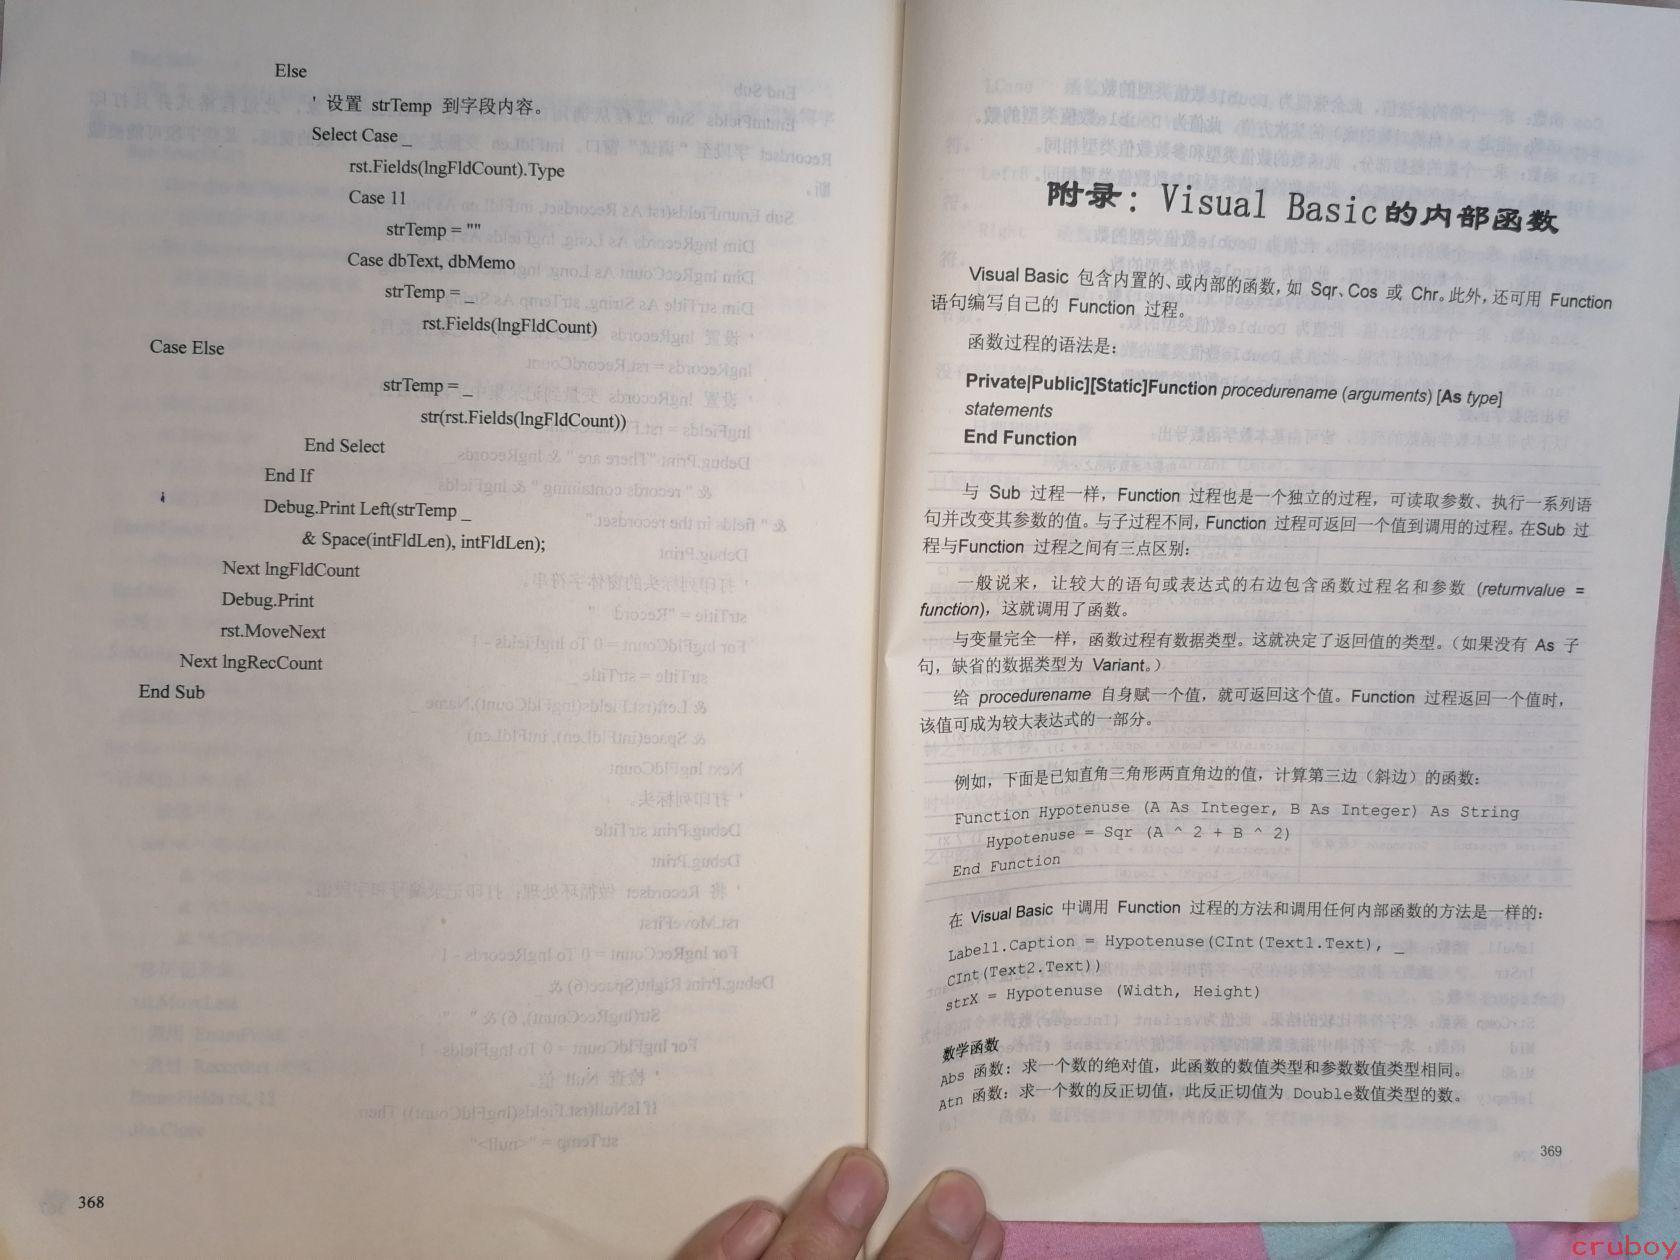 Else
' 设置 strTemp 到字段内容。
Select Case _
rst.Fields(lngFldCount).Type
Case 11
strTemp = ""
Case dbText, dbMemo
strTemp = _
rst.Fields(lngFldCount)
Case Else
strTemp = _
str(rst.Fields(lngFldCount))
End Select
End If
Debug.Print Left(strTemp _
& Space(intFldLen), intFldLen);
Next lngFldCount
Debug.Print
rst.MoveNext
Next lngRecCount
End Sub
368
附录：Visual Basic的内部函数
Visual Basic 包含内置的、或内部的函数，如 Sqr、Cos 或 Chr。此外，还可用 Function
语句编写自己的 Function 过程。
函数过程的语法是：
Private|Public][Static]Function procedurename (arguments) [As type]
statements
End Function
与 Sub 过程一样，Function 过程也是一个独立的过程，可读取参数、执行一系列语
句并改变其参数的值。与子过程不同，Function 过程可返回一个值到调用的过程。在Sub 过
程与Function 过程之间有三点区别：
一般说来，让较大的语句或表达式的右边包含函数过程名和参数 (returnvalue =
function)，这就调用了函数。
与变量完全一样，函数过程有数据类型。这就决定了返回值的类型。（如果没有 As 子
句，缺省的数据类型为 Variant。）
给 procedurename 自身赋一个值，就可返回这个值。Function 过程返回一个值时，
该值可成为较大表达式的一部分。
例如，下面是已知直角三角形两直角边的值，计算第三边（斜边）的函数：
Function Hypotenuse (A As Integer, B As Integer) As String
Hypotenuse = Sqr (A ^ 2 + B ^ 2)
End Function
在 Visual Basic 中调用 Function 过程的方法和调用任何内部函数的方法是一样的：
Label1.Caption = Hypotenuse(CInt(Text1.Text), _
CInt(Text2.Text))
strX = Hypotenuse (Width, Height)
数学函数
Abs 函数：求一个数的绝对值，此函数的数值类型和参数数值类型相同。
Atn 函数：求一个数的反正切值，此反正切值为 Double数值类型的数。
369
cruboy